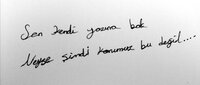 Sen kendi yazına bak
Neyse şimdi konumuz bu değil....